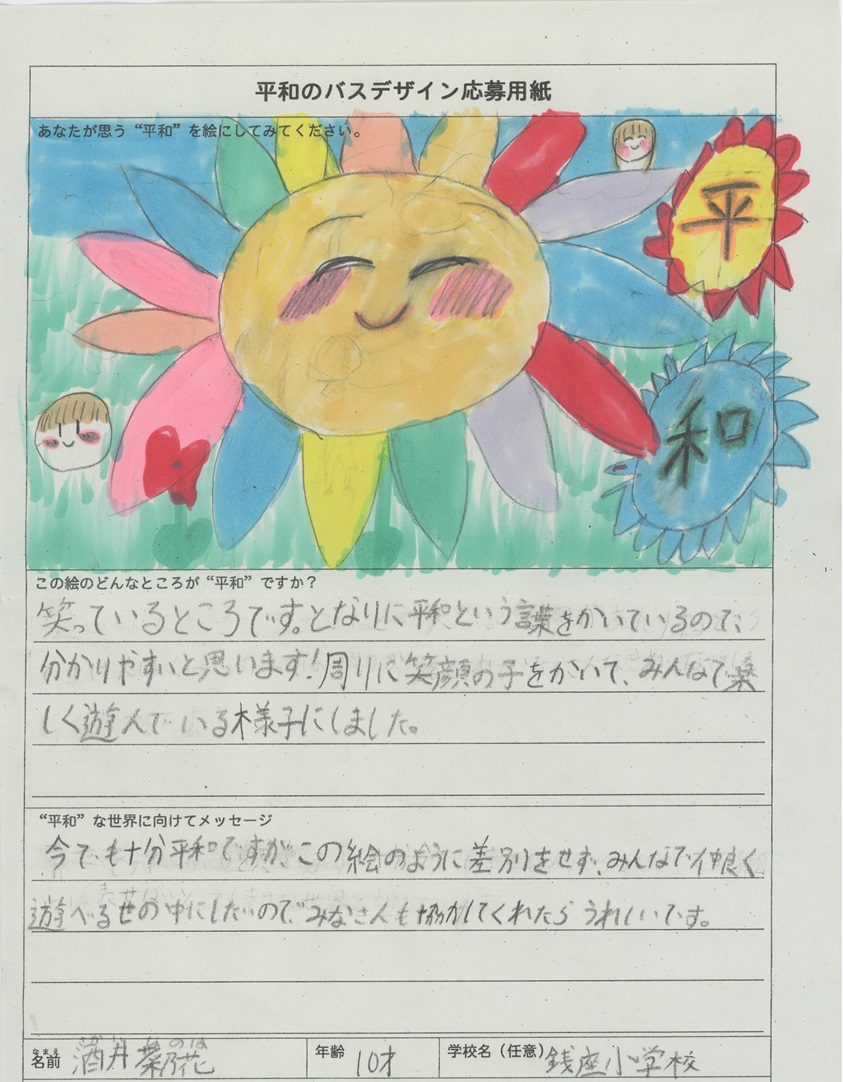 平和のバスデザイン応募用紙
あなたが思う“平和”を絵にしてみてください。
平
和
この絵のどんなところが“平和”ですか？
笑っているところです。となりに平和という言葉をかいているので、
分かりやすいと思います！周りに笑顔の子をかいて、みんなで楽
しく遊んでいる様子にしました。
“平和”な世界に向けてメッセージ
今でも十分平和ですが、この絵のように差別をせず、みんなで仲良く
遊べる世の中にしたいので、みなさんも協力してくれたらうれしいです。
なまえ
名前 酒井 花 のは
年齢 10才
学校名（任意） 銭座小学校